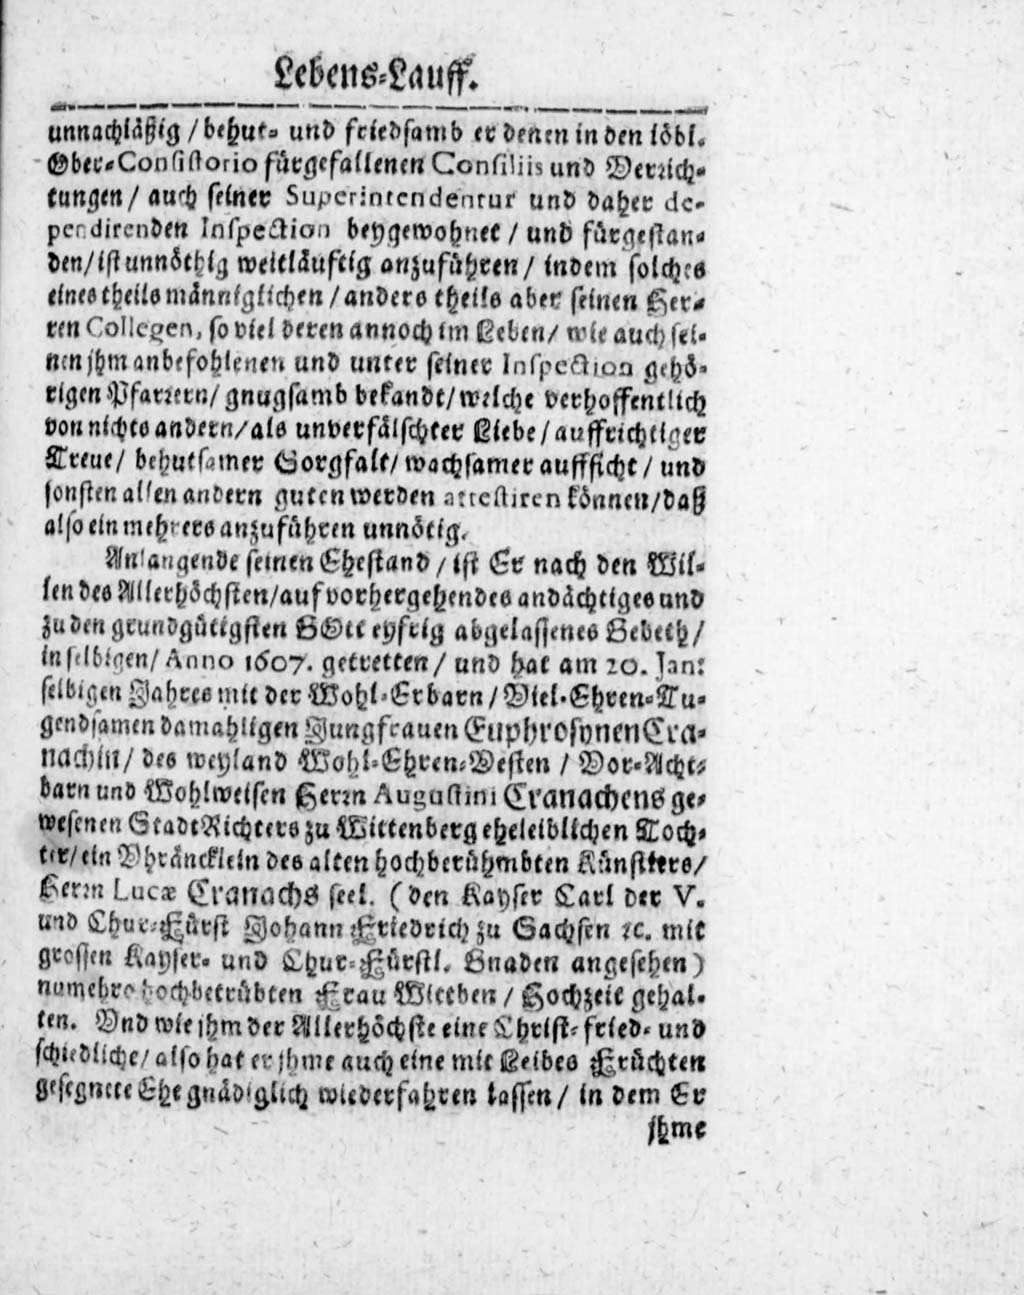 Lebens-Lauff.
unnachläßig / behut- und friedsamb er denen in den löbl.
Ober-Consistorio fürgefallenen Consiliis und Verrich-
tungen / auch seiner Superintendentur und daher de-
pendirenden Inspection beygewohnet / und fürgestan-
den / ist unnöthig weitläuftig anzuführen / indem solches
eines theils männiglichen / anders theils aber seinen Her-
ren Collegen, so viel deren annoch im Leben / wie auch sei-
nen jhm anbefohlenen und unter seiner Inspection gehö-
rigen Pfarrern / gnugsamb bekandt / welche verhoffentlich
von nichts andern / als unverfälschter Liebe / auffrichtiger
Treue / behutsamer Sorgfalt / wachsamer auffsicht / und
sonsten allen andern guten werden attestiren können / daß
also ein mehrers anzuführen unnötig.
Anlangende seinen Ehestand / ist Er nach den Wil-
len des Allerhöchsten / auf vorhergehendes andächtiges und
zu den grundgütigsten GOtt eyfrig abgelassenes Gebeth /
in selbigen / Anno 1607. getretten / und hat am 20. Jan:
selbigen Jahres mit der Wohl-Erbarn / Viel-Ehren-Tu-
gendsamen damahligen Jungfrauen Euphrosynen Cra-
nachin / des weyland Wohl-Ehren-Vesten / Vor-Acht-
barn und Wohlweisen Herrn Augustini Cranachens ge-
wesenen StadtRichters zu Wittenberg eheleiblichen Toch-
ter / ein Vhräncklein des alten hochberühmbten Künstlers /
Herrn Lucæ Cranachs seel. ( den Kayser Carl der V.
und Chur-Fürst Johann Friedrich zu Sachsen ꝛc. mit
grossen Kayser- und Chur-Fürstl. Gnaden angesehen )
numehro hochbetrübten Frau Wittben / Hochzeit gehal-
ten. Vnd wie jhm der Allerhöchste eine Christ- fried- und
schiedliche / also hat er jhme auch eine mit Leibes Früchten
gesegnete Ehe gnädiglich wiederfahren lassen / in dem Er
jhme